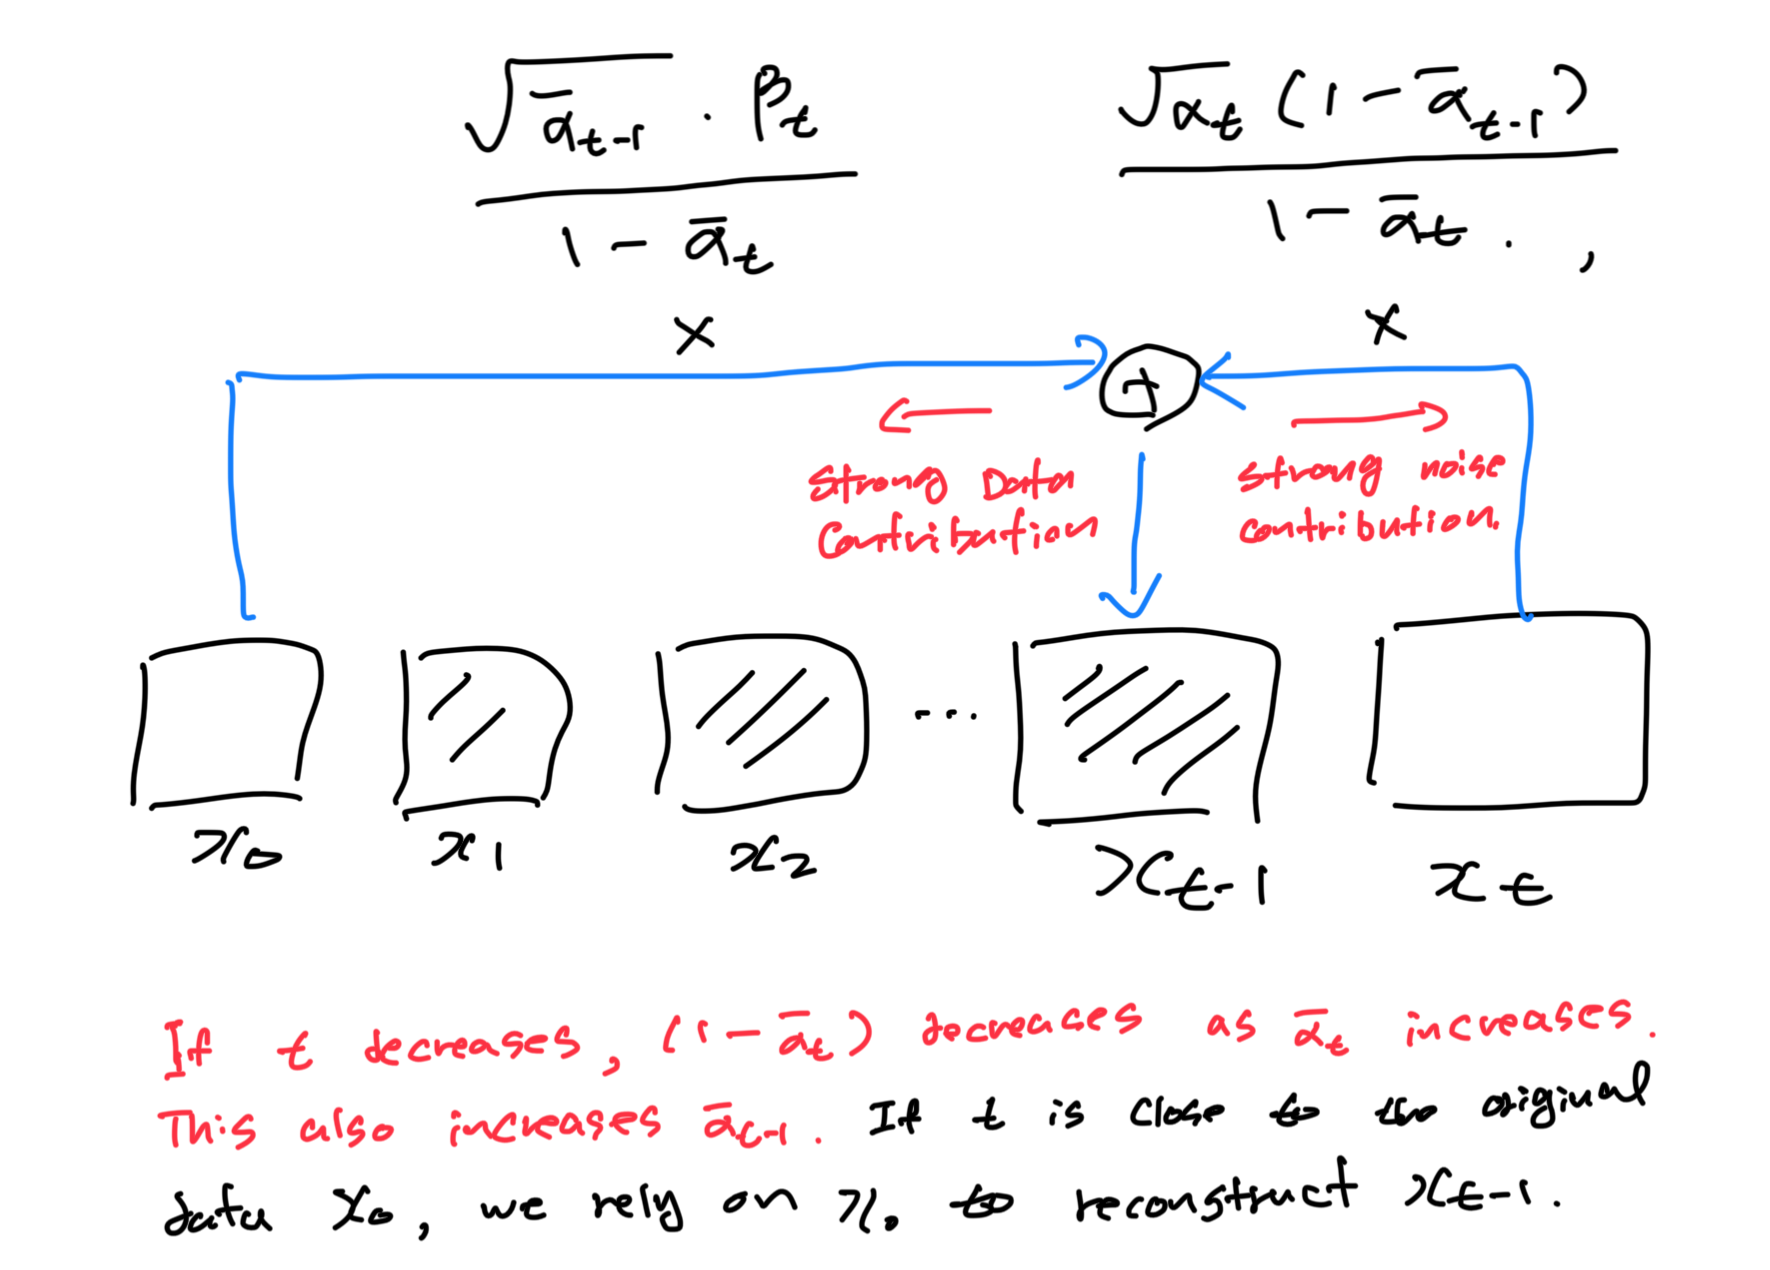 √ᾱₜ₋₁ · βₜ
1 − ᾱₜ
√αₜ (1 − ᾱₜ₋₁)
1 − ᾱₜ . ,
× ×
+
Strong Data
Contribution
strong noise
contribution.
...
x₀ x₁ x₂ xₜ₋₁ xₜ
If t decreases, (1 − ᾱₜ) decreases as ᾱₜ increases.
This also increases ᾱₜ₋₁. If t is close to the original
data x₀, we rely on x₀ to reconstruct xₜ₋₁.